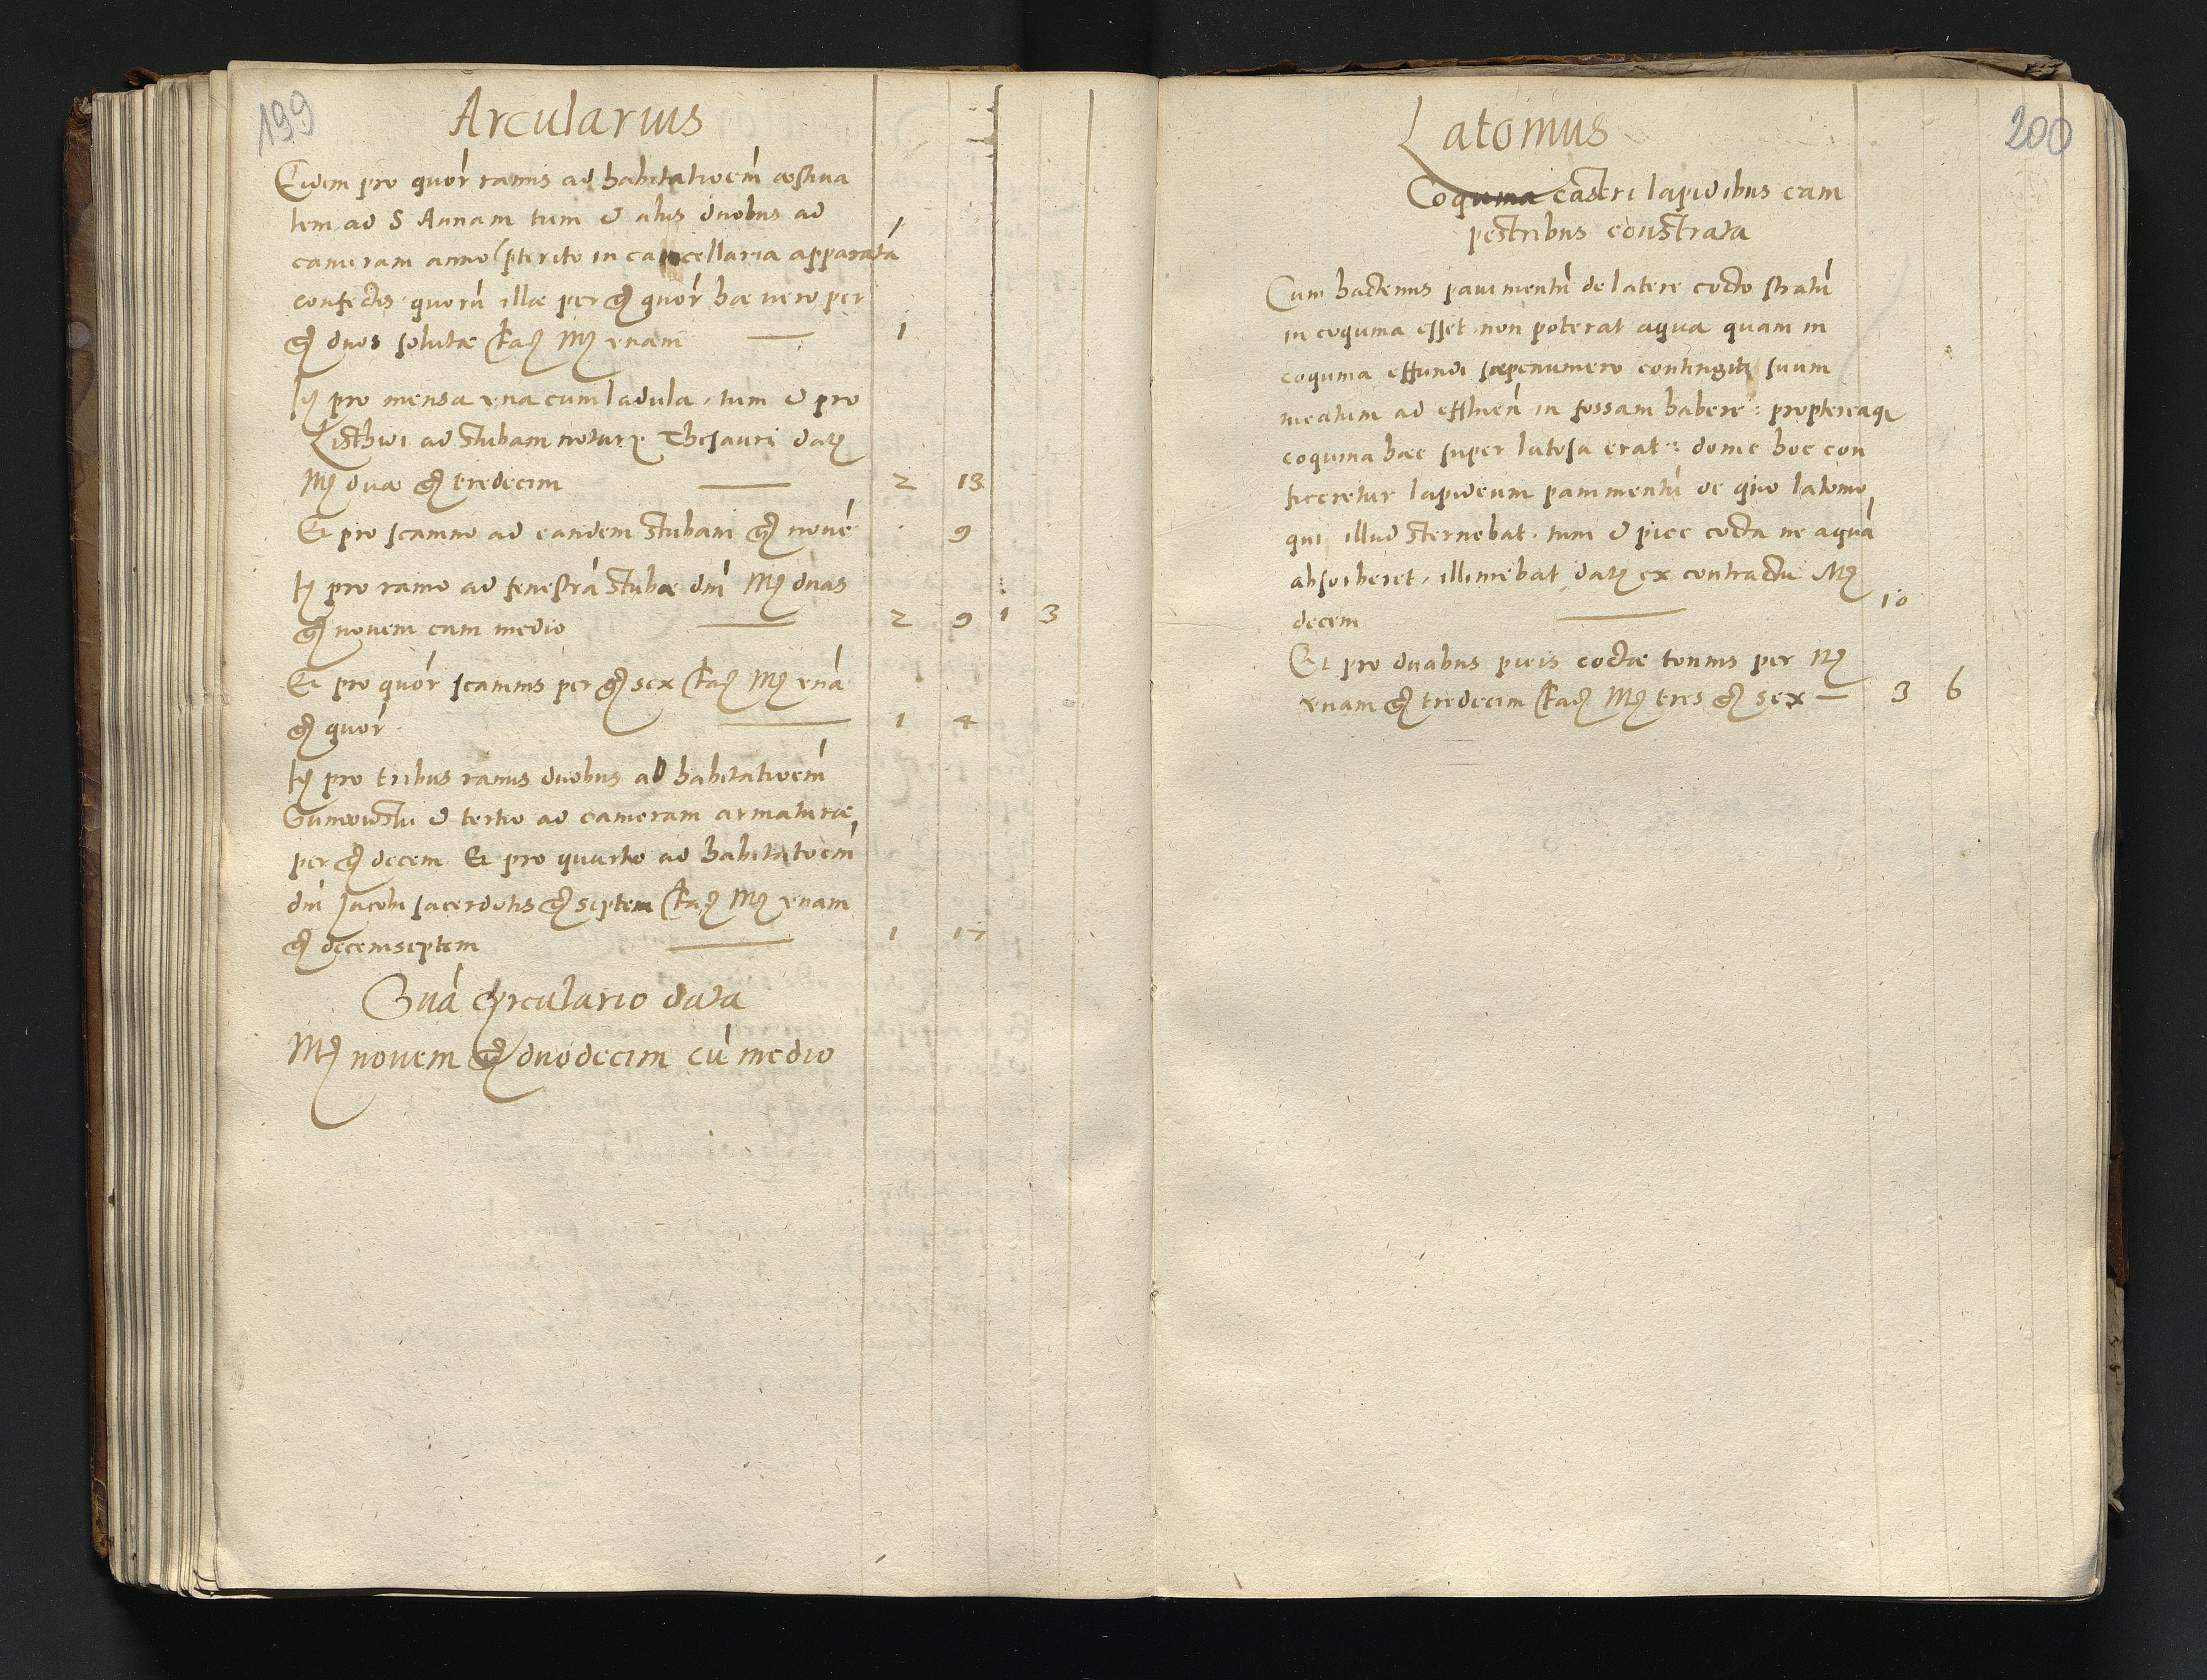 199
Arcularius
Eidem pro quor ramis ad habitatioem aestiva
lem ad S Annam tum & aliis duobus ad
cameram anno pterito in cancellaria apparatā
confectis quorū illae per gr quor hae vero per
gr duos solutae facit Mr vnam — 1
It pro mensa vna cum ladula, tum & pro
ad stubam Thesauri dat
Mr duae gr tredecim — 2 13
Et pro scamno ad eandem stubam gr novē · 9
It pro ramo ad fenestrā stubae dni Mr duas
gr novem cum medio — 2 9 1 3
Et pro quor scamnis per gr sex facit Mr vnā
gr quor — 1 4
It pro tribus ramis duobus ad habitatioem
& tertio ad cameram armaturae,
per gr decem. Et pro quarto ad habitatoem
dni Jacobi sacerdotis gr septem facit Mr vnam
gr decemseptem — 1 17
Suā arculario data
Mr novem gr duodecim cū medio
200
Latomus
Coquina castri lapidibus cam
pestribus constrata
Cum hactenus pavimentū de latere cocto stratū
in coquina esset, non poterat aqua quam in
coquina effundi saepenumero contingit, suum
meatum ad effluen in fossam habere: proptereaq
coquina haec super lutosa erat: donec hoc con
ficeretur lapideum pavimentū de quo latomo,
qui illud sternebat, tum & pice cocta ne aquā
absorberet, illinebat dat ex contractu Mr
decem — 10
Et pro duabus picis coctae tonnis per Mr
vnam gr tredecim facit Mr tres gr sex — 3 6